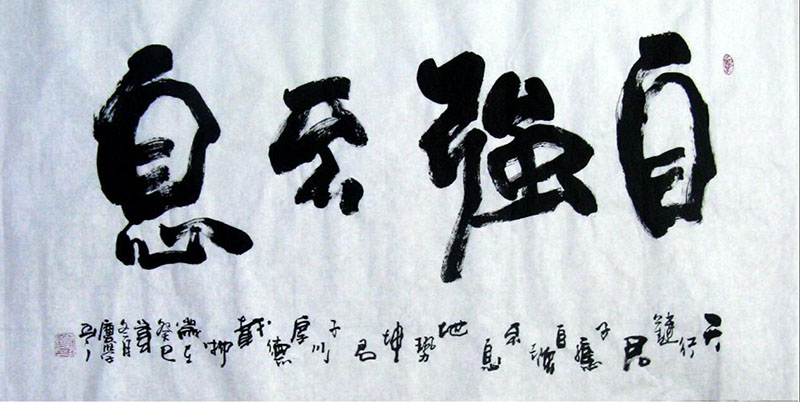 自強不息
天行健君子應自強不息地勢坤君子以厚德載物歲在癸巳冬月